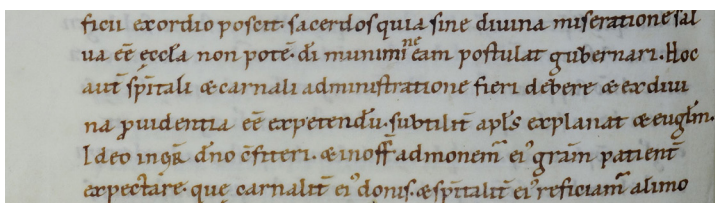 ficii exordio poscit. sacerdos quia sine divina miseratione sal
ua eē eccła non potē. di munimine eam postulat gubernari. Hoc
aut̄ sp̄itali & carnali administratione fieri debere & ex diui
na ꝓuidentia eē expetendū. subtilit̄ apl̄s explanat & eugl̄m.
Ideo dn̄o c̄fiteri. & in off̄ admonem̄ ei᾽ grām patient̄
expectare. que carnalit̄ ei᾽ donis. & sp̄italit̄ ei᾽ reficiam̄ alimo